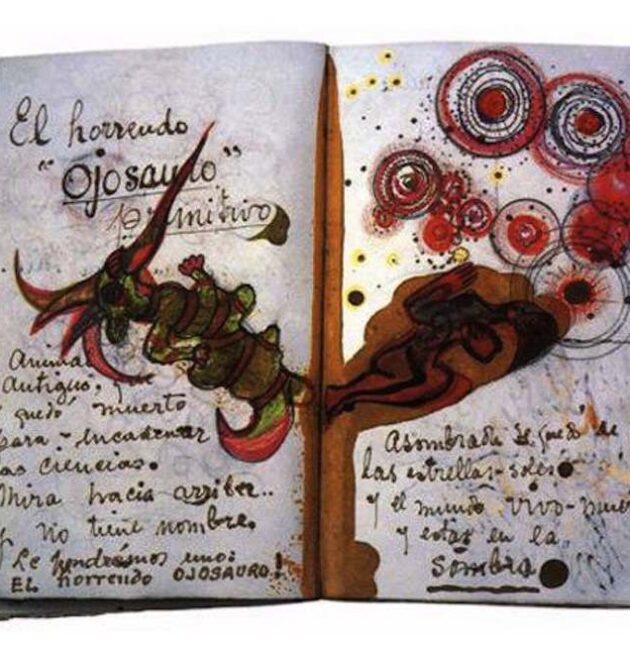 El horrendo
"Ojosauro"
primitivo
Animal
antiguo. que
quedó muerto
para encadenar
las ciencias.
Mira hacia arriba..
y no tiene nombre.
Le pondremos uno:
EL horrendo OJOSAURO!
Asombrada se quedó de
las estrellas-soles
y el mundo vivo-muer
y estar en la
sombra